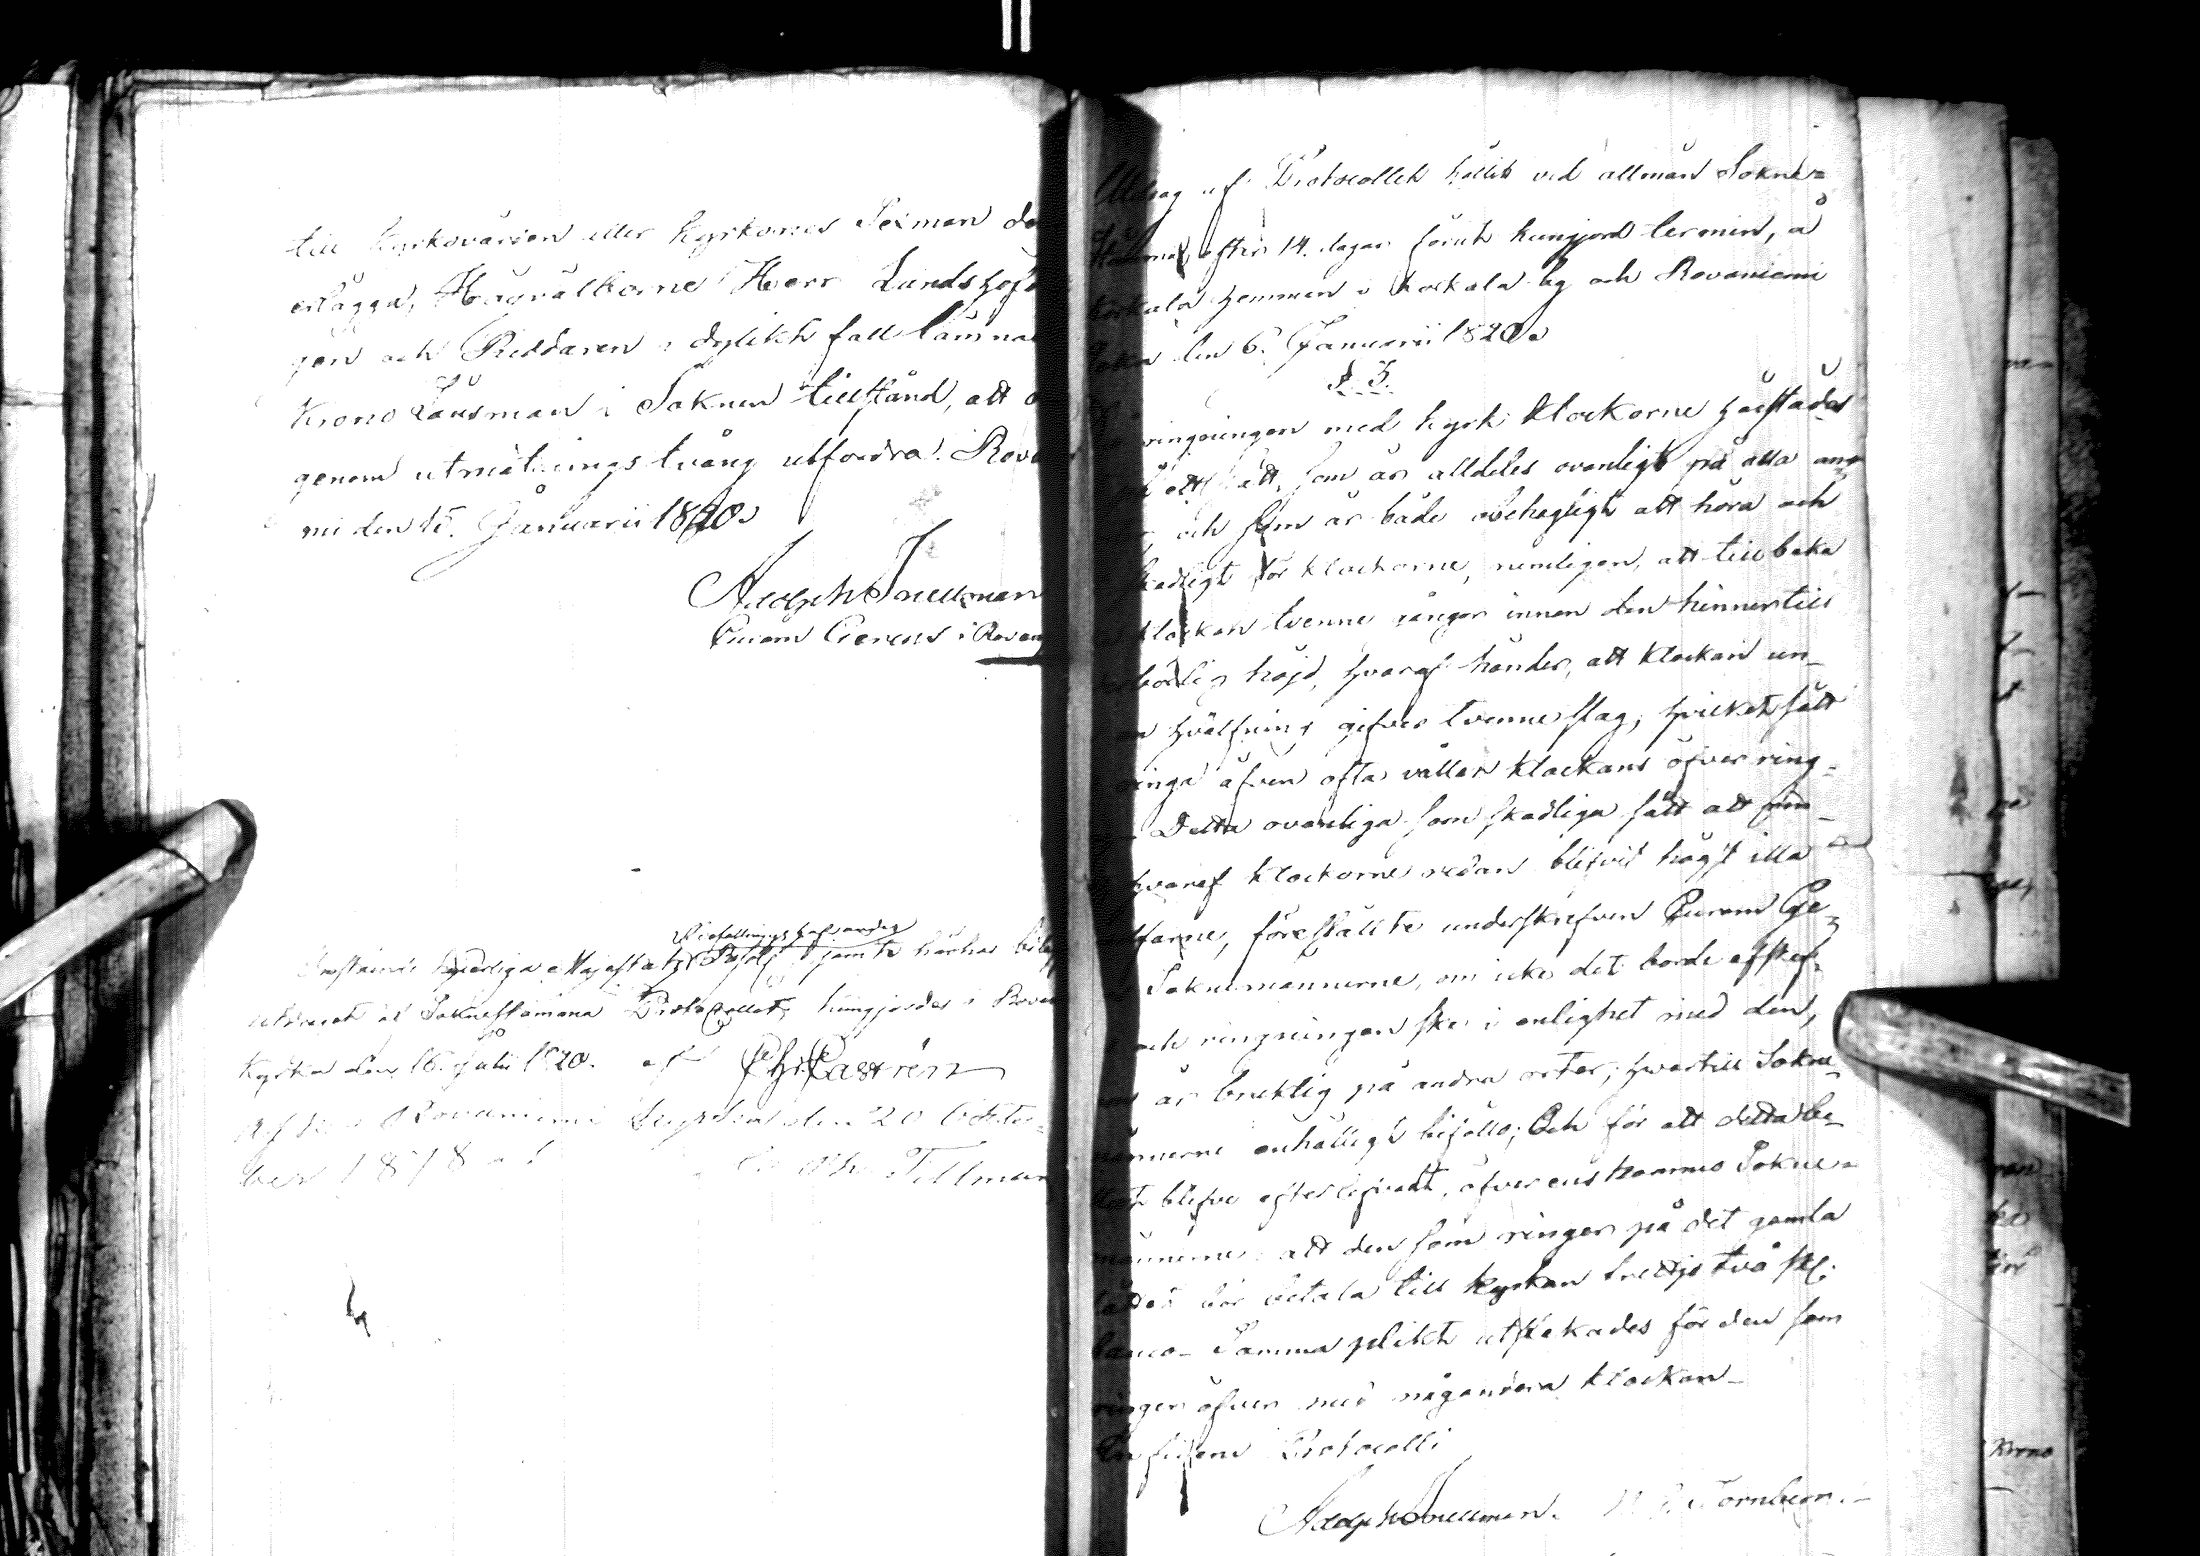 till Kyrkovärden eller Kyrkones Sexman
erlägga, Högvälborne Herr Landshöf
gen och Riddaren i dylikt fall lämna
Krono Länsman i Soknen tillstånd, att
genom utmätnings tvång utfordra. Rova
mi den 15. Januarii 1820.
Adolph Snellman
Curam Gerens i Rovan
Befallningshafvandes
jemte härhos
utdraget af Soknestämmo Protocollet, kungjordes i Rova
Kyrka den 16. Julii 1820. af Castrén
Rovaniemi Kyrka den 20 Octo-
ber 1818 af Tillman
Utdrag af Protocollet hållit vid allmän Sokne-
Stämma, efter 14. dagar förut kungjord termin, å
Korkala hemman i Korkala by och Rovaniemi
Sokn den 6. Januarii 1820.
§ 3.
ringningen med Kyrk Klockorne härstädes
sätt, som är alldeles ovanligt på alla an-
och som är både obehagligt att höra och
skadligt för Klockorne, nemligen, att tillbaka
Klockan tvenne gånger innan den hinner till
behörlig höjd, hvaraf händer, att Klockan un-
hvälfning gifver tvenne slag; hvilket sätt
ringa äfven ofta vållar Klockans öfverring-
Detta ovanliga som skadliga sätt att
hvaraf Klockorne redan blifvit högst illa
farne, föreställte underskrefven Curam Ge-
Soknemännerne, om icke det borde afskaf-
och ringningen ske i enlighet med den,
är bruklig på andra orter; hvartill Sokne-
männerne enhälligt biföllo; Och för att detta be-
slut blifve efterlefvadt, öfverenskommo Sokne-
männerne: att den som ringer på det gamla
sättet bör betala till Kyrkan trettjo två sk:
banco. Samma plikt utstakades för den som
ringer öfver med någondera Klockan.
In fidem Protocolli
Adolph Snellman. Törnberg.
Krono